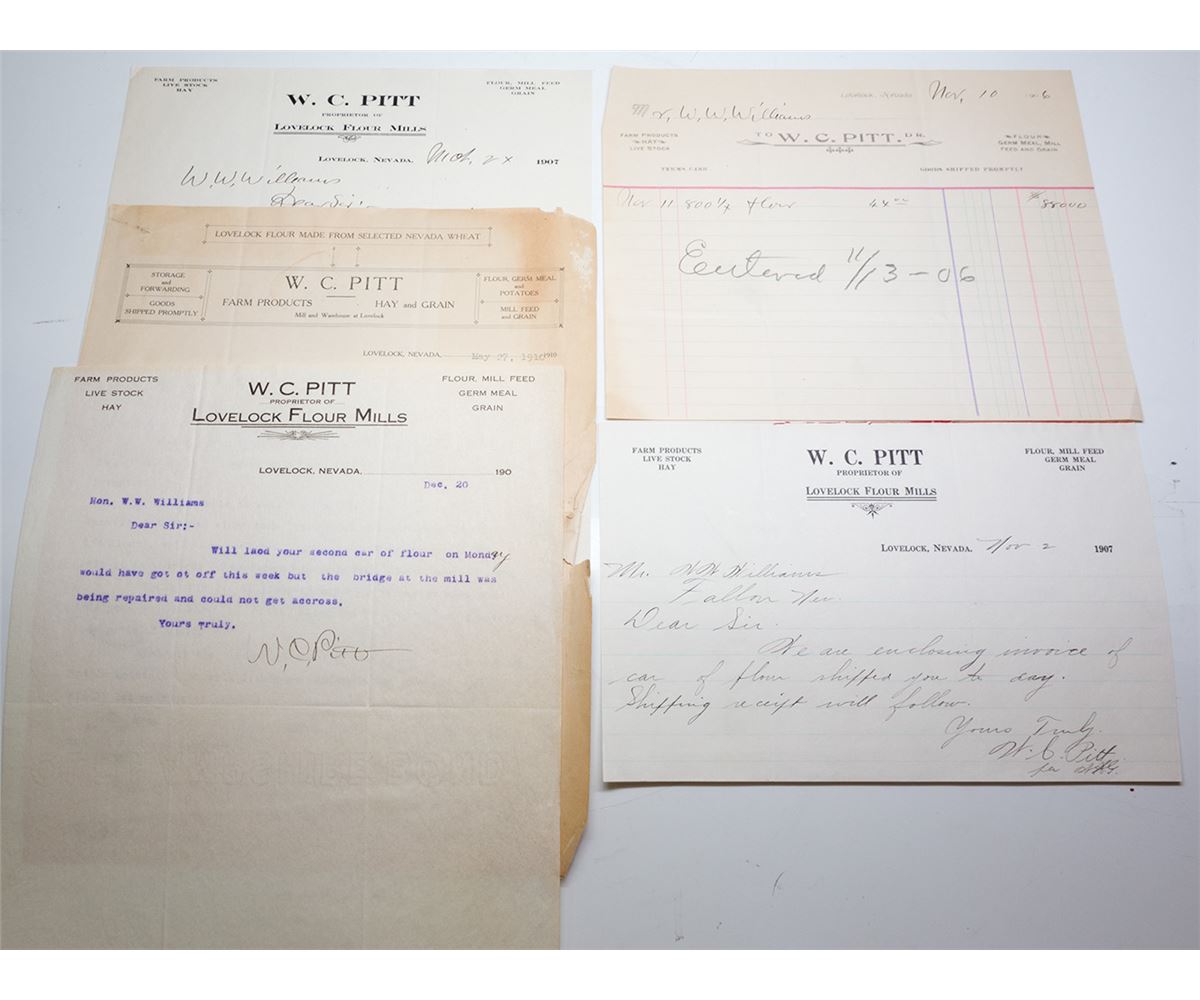 FARM PRODUCTS
LIVE STOCK
HAY
W. C. PITT
PROPRIETOR OF
LOVELOCK FLOUR MILLS
FLOUR, MILL FEED
GERM MEAL
GRAIN
LOVELOCK, NEVADA. 1907
W. W. Williams
Dear Sir:
LOVELOCK FLOUR MADE FROM SELECTED NEVADA WHEAT
STORAGE
and
FORWARDING
GOODS
SHIPPED PROMPTLY
W. C. PITT
FARM PRODUCTS HAY and GRAIN
Mill and Warehouse at Lovelock
FLOUR, GERM MEAL
and
POTATOES
MILL FEED
and GRAIN
LOVELOCK, NEVADA, May 27, 1910 1910
FARM PRODUCTS
LIVE STOCK
HAY
W. C. PITT
PROPRIETOR OF
LOVELOCK FLOUR MILLS
FLOUR, MILL FEED
GERM MEAL
GRAIN
LOVELOCK, NEVADA, 190
Dec. 20
Hon. W.W. Williams
Dear Sir:-
Will laod your second car of flour on Monday
would have got ot off this week but the bridge at the mill was
being repaired and could not get accross.
Yours Truly.
W. C. Pitt
Lovelock, Nevada Nov, 10 1906
Mr, W. W. Williams
FARM PRODUCTS
HAY
LIVE STOCK
TO W. C. PITT. DR.
FLOUR
GERM MEAL, MILL
FEED AND GRAIN
TERMS CASH
GOODS SHIPPED PROMPTLY
Nov 11 800 1/4 flour 44 00 $ 880 00
Entered 11/13-06
FARM PRODUCTS
LIVE STOCK
HAY
W. C. PITT
PROPRIETOR OF
LOVELOCK FLOUR MILLS
FLOUR, MILL FEED
GERM MEAL
GRAIN
LOVELOCK, NEVADA. Nov 2 1907
Mr. W W Williams
Fallon Nev.
Dear Sir.
We are enclosing invoice of
car of flour shipped you to day.
Shipping receipt will follow.
Yours Truly.
W. C. Pitt.
per